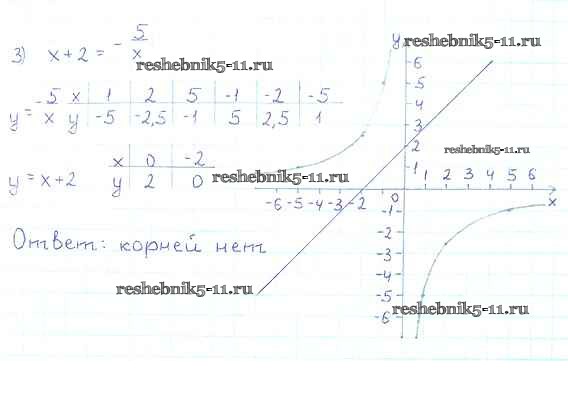 3) x + 2 = - 5/x
reshebnik5-11.ru
reshebnik5-11.ru
y = -5/x x 1 2 5 -1 -2 -5
y -5 -2,5 -1 5 2,5 1
reshebnik5-11.ru
y = x + 2 x 0 -2
y 2 0
reshebnik5-11.ru
Ответ: корней нет
reshebnik5-11.ru
reshebnik5-11.ru
y
6
5
4
3
2
1
-6 -5 -4 -3 -2 0 1 2 3 4 5 6 x
-1
-2
-3
-4
-5
-6